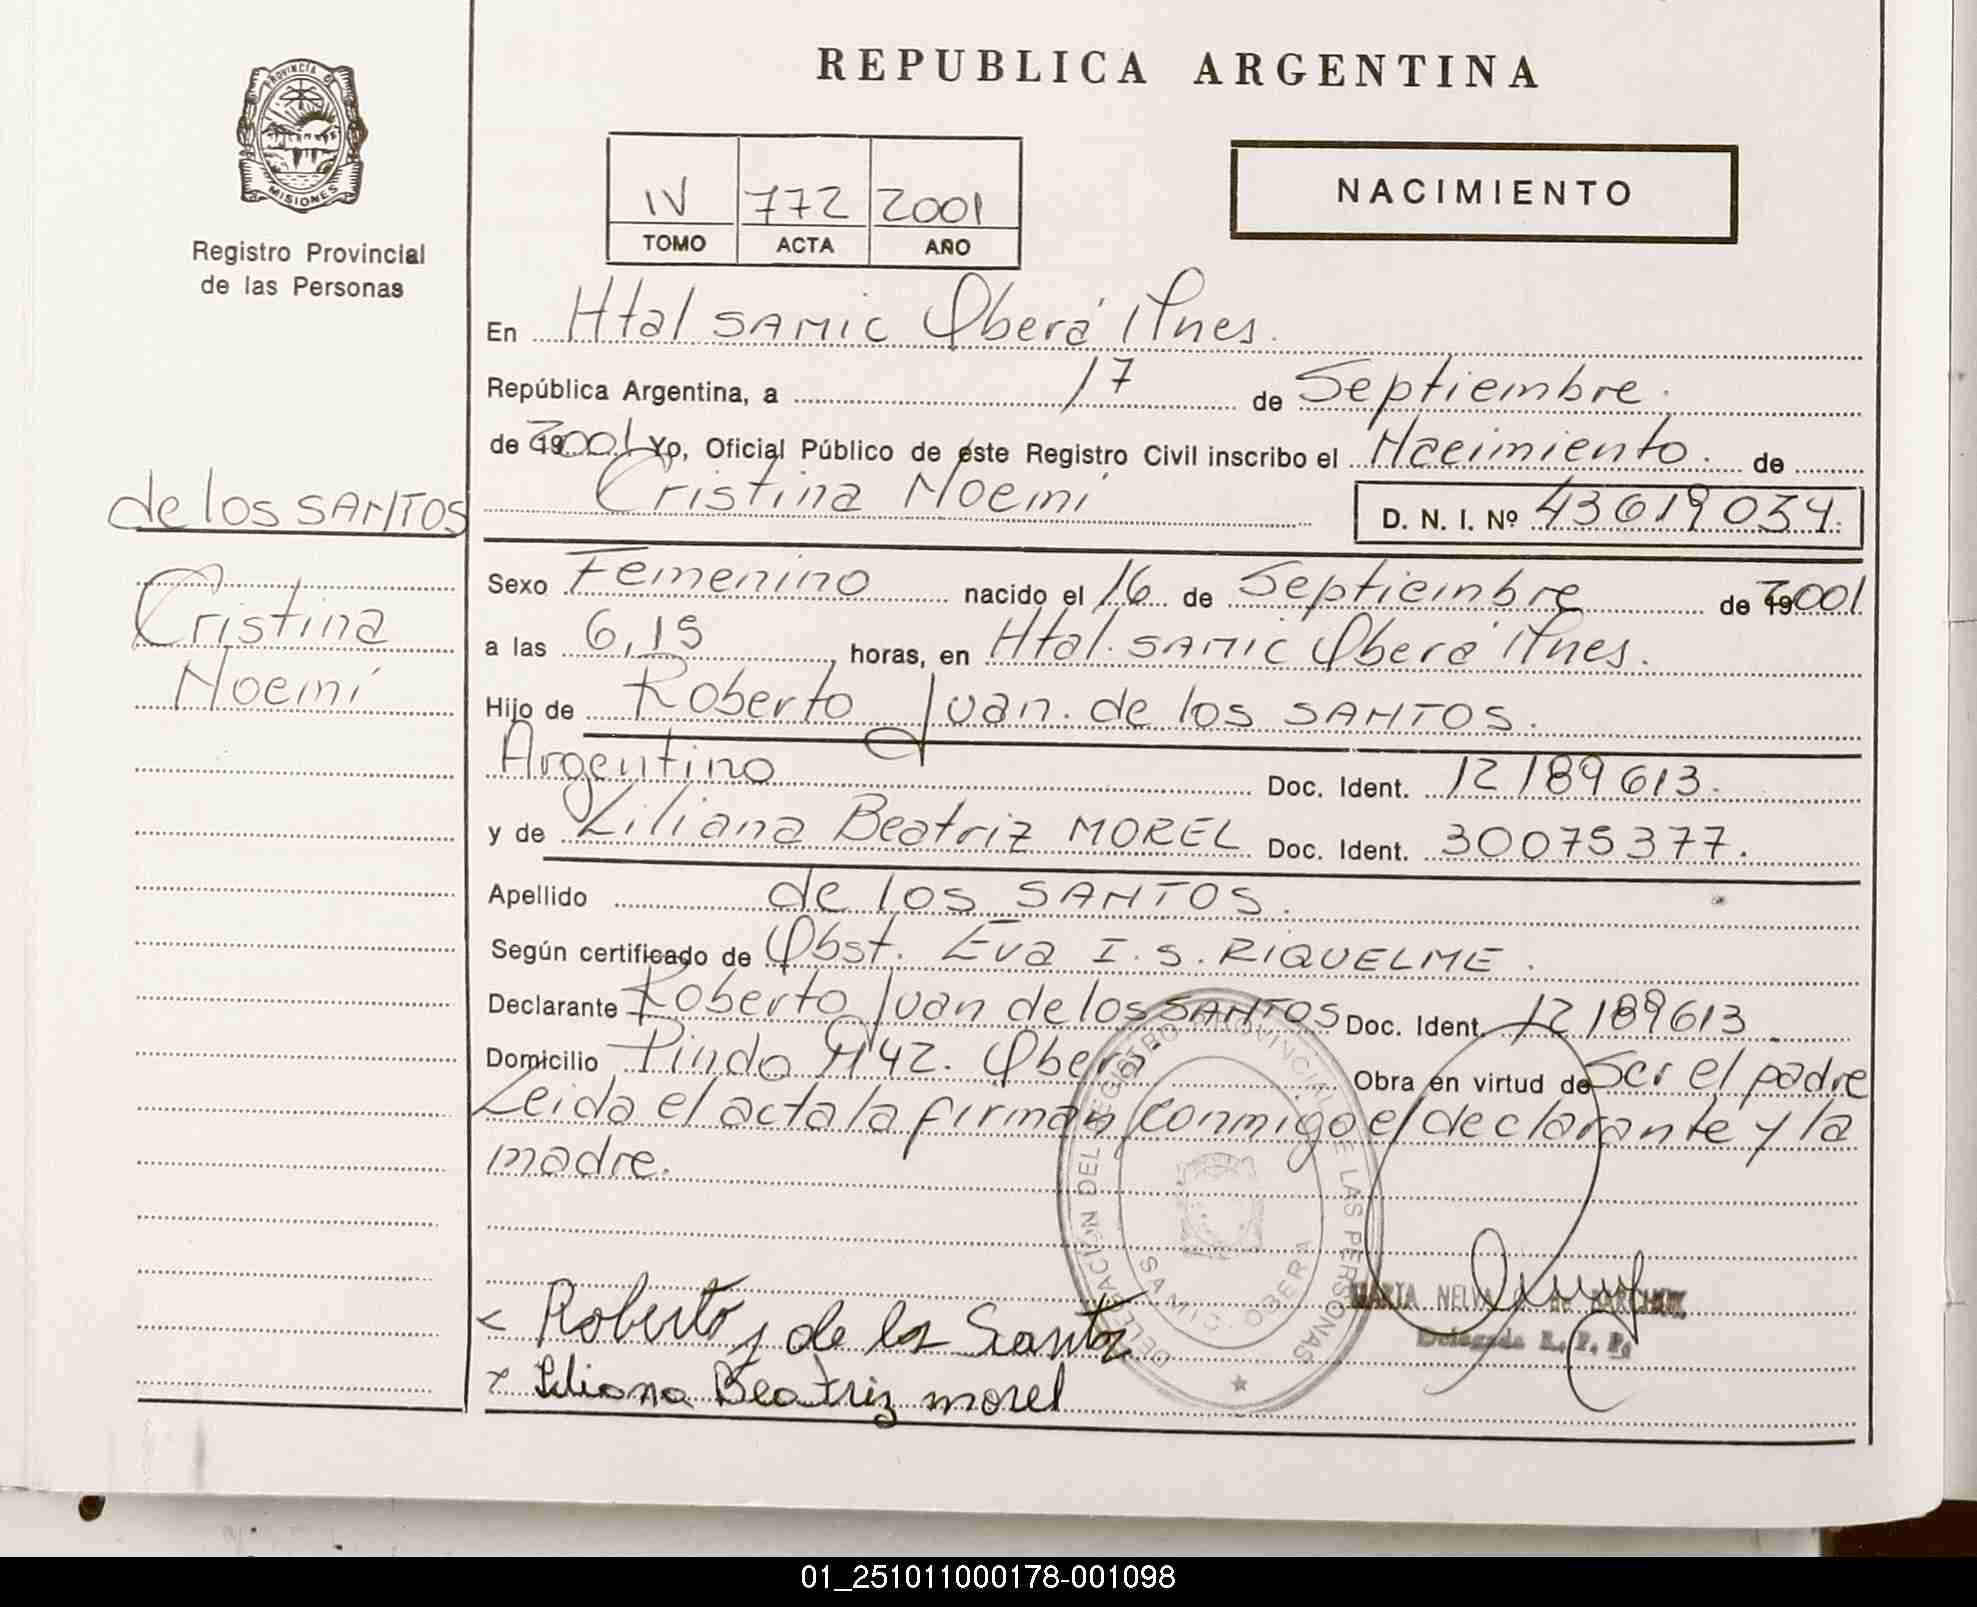 REPUBLICA ARGENTINA
PROVINCIA D
MISIONES
Registro Provincial
de las Personas
IV 772 2001
TOMO ACTA AÑO
NACIMIENTO
En Htal SAMIC Oberá Mnes.
República Argentina, a 17 de Septiembre.
de 192001 Yo, Oficial Público de éste Registro Civil inscribo el Nacimiento. de
Cristina Noemí D. N. I. Nº 43619034.
de los SANTOS
Cristina
Noemí
Sexo Femenino nacido el 16 de Septiembre de 192001
a las 6,15 horas, en Htal. SAMIC Oberá Mnes.
Hijo de Roberto Juan. de los SANTOS.
Argentino Doc. Ident. 12189613.
y de Liliana Beatriz MOREL Doc. Ident. 30075377.
Apellido de los SANTOS.
Según certificado de Obst. Eva I. S. RIQUELME.
Declarante Roberto Juan de los SANTOS Doc. Ident. 12189613
Domicilio Pindo 942. Oberá Obra en virtud de Ser el padre
Leida el acta la firman conmigo el declarante y la
madre.
DELEGACION DEL REGISTRO PROVINCIAL DE LAS PERSONAS
SAMIC. OBERA
Roberto J de los Santos
Liliana Beatriz morel
MARIA NELVA de
Delegada R. P. P.
01_251011000178-001098